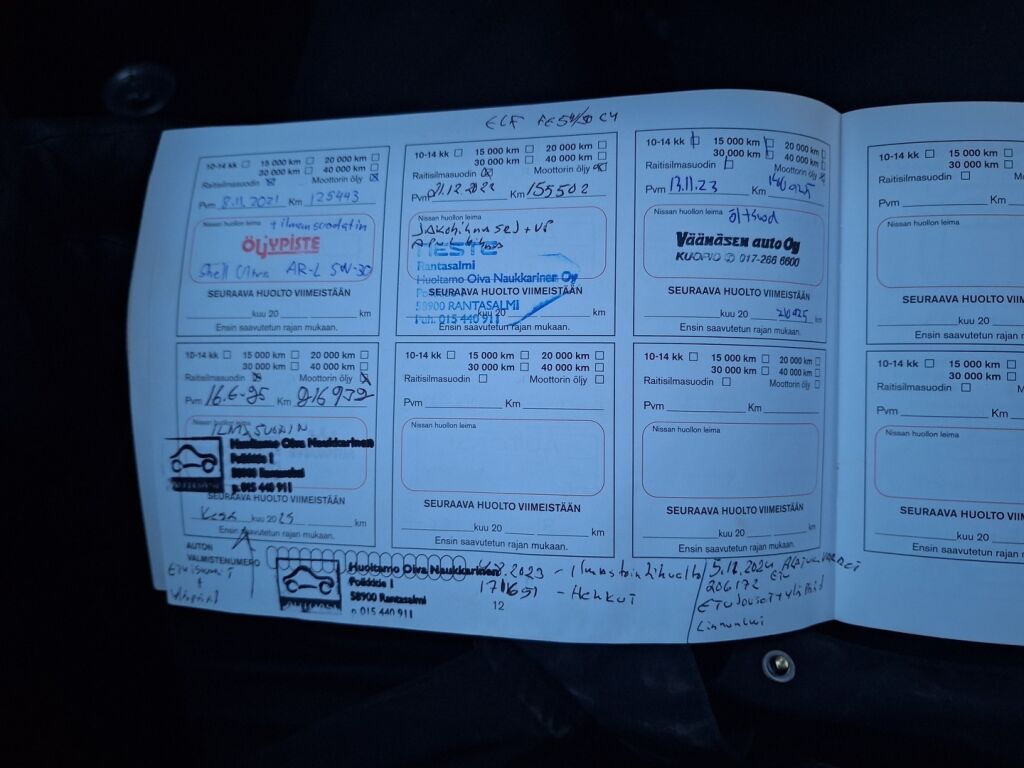 ELF
10-14 kk 15 000 km 20 000 km
30 000 km 40 000 km
Raitisilmasuodin Moottorin öljy
Pvm 8.11.2021 Km 125443
Nissan huollon leima + ilmansuodatin
ÖLJYPISTE
Shell Ultra AR-L 5W-30
SEURAAVA HUOLTO VIIMEISTÄÄN
kuu 20 km
Ensin saavutetun rajan mukaan.
10-14 kk 15 000 km 20 000 km
30 000 km 40 000 km
Raitisilmasuodin Moottorin öljy
Pvm 21.12.2022 Km 155502
Nissan huollon leima
Jakohihnased + VP
NESTE
Rantasalmi
Huoltamo Oiva Naukkarinen Oy
SEURAAVA HUOLTO VIIMEISTÄÄN
58900 RANTASALMI
kuu 20 km
Puh. 015 440 911
Ensin saavutetun rajan mukaan.
10-14 kk 15 000 km 20 000 km
30 000 km 40 000 km
Raitisilmasuodin Moottorin öljy
Pvm 13.11.23 Km
Nissan huollon leima
öl+suod
Väänäsen auto Oy
KUOPIO 017-266 6600
SEURAAVA HUOLTO VIIMEISTÄÄN
kuu 20 km
Ensin saavutetun rajan mukaan.
10-14 kk 15 000 km
30 000 km
Raitisilmasuodin
Pvm
Nissan huollon leima
SEURAAVA HUOLTO
Ensin saavutetun
10-14 kk 15 000 km 20 000 km
30 000 km 40 000 km
Raitisilmasuodin Moottorin öljy
Pvm 16.6-25 Km 216972
ILMASUODIN
Huoltamo Oiva Naukkarinen
Poikkitie 1
58900 Rantasalmi
p.015 440 911
SEURAAVA HUOLTO VIIMEISTÄÄN
kuu 2025 km
Ensin saavutetun rajan mukaan.
10-14 kk 15 000 km 20 000 km
30 000 km 40 000 km
Raitisilmasuodin Moottorin öljy
Pvm Km
Nissan huollon leima
SEURAAVA HUOLTO VIIMEISTÄÄN
kuu 20 km
Ensin saavutetun rajan mukaan.
10-14 kk 15 000 km 20 000 km
30 000 km 40 000 km
Raitisilmasuodin Moottorin öljy
Pvm Km
Nissan huollon leima
SEURAAVA HUOLTO VIIMEISTÄÄN
kuu 20 km
Ensin saavutetun rajan mukaan.
10-14 kk 15 000 km
30 000 km
Raitisilmasuodin
Pvm
Nissan huollon leima
SEURAAVA HUOLTO
Ensin saavutetun
AUTON
VALMISTENUMERO
Huoltamo Oiva Naukkarinen
Poikkitie 1
58900 Rantasalmi
p. 015 440 911
2023 - Ilmastointihuolto
171651 - Hehkut
5.12.2024
206172
Etujouset + yläpäät
12